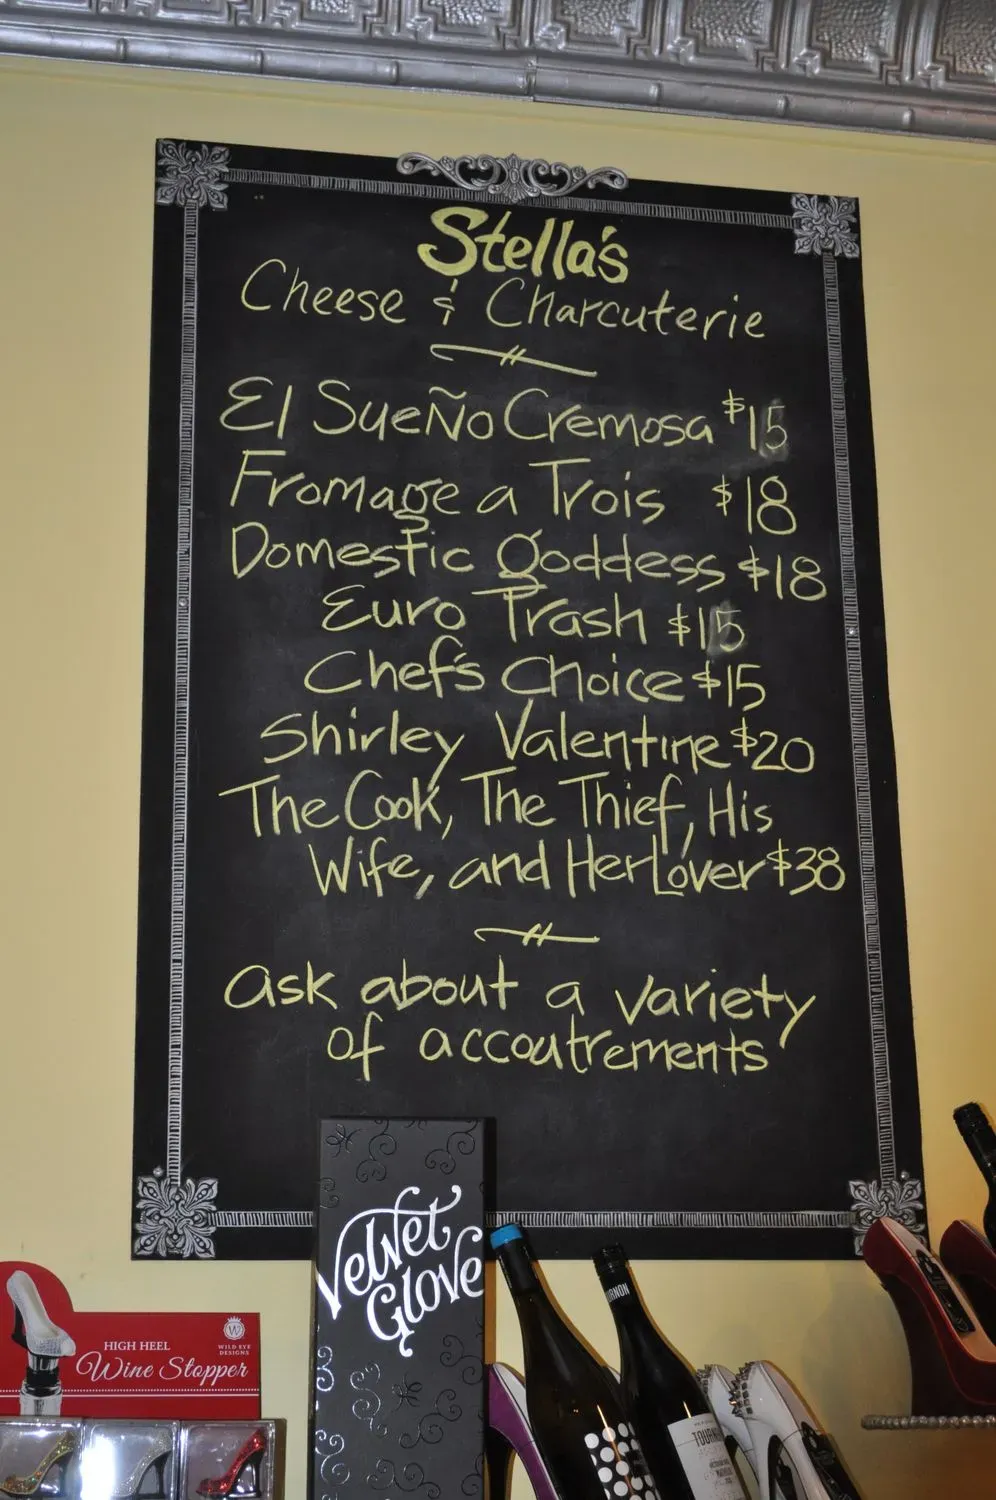 Stella's
Cheese & Charcuterie
El Sueño Cremosa $15
Fromage a Trois $18
Domestic goddess $18
Euro Trash $15
Chef's Choice $15
Shirley Valentine $20
The Cook, The Thief, His
Wife, and Her Lover $38
ask about a variety
of accoutrements
Velvet
Glove
HIGH HEEL
Wine Stopper
W
WILD EYE
DESIGNS